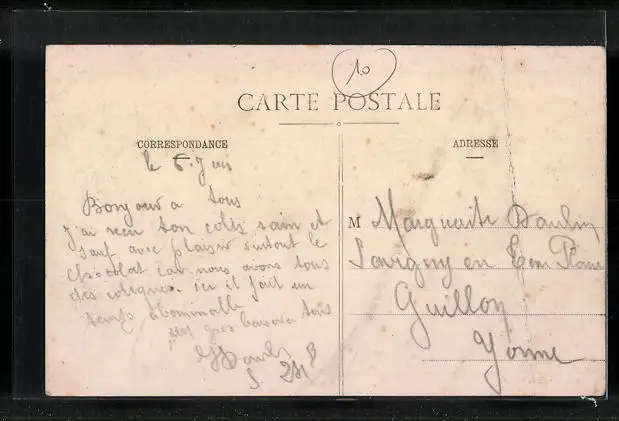 10
CARTE POSTALE
CORRESPONDANCE
le 6 Juin
Bonjour a tous
j'ai recu ton colis sain et
sauf avec plaisir surtout le
chocolat car nous avons tous
des coliques. ici il fait un
temps abominable
un gros a tous
ADRESSE
M Marguerite
Savigny en Terre Plaine
Guillon
Yonne